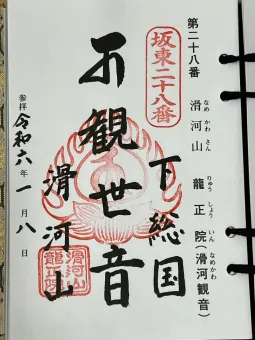 第二十八番
滑河山 龍正院(滑河観音)
なめ かわ さん りゅう しょう いん なめかわ
坂東二十八番
下総国
観世音
滑河山
参拝 令和六年一月八日
滑河山
龍正院